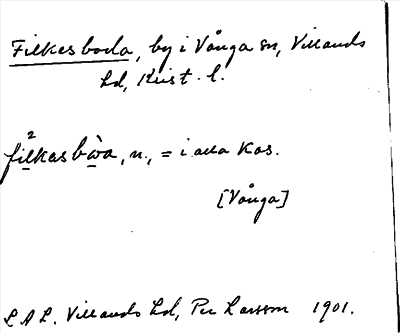 Filkesboda, by i Vånga sn, Villands
hd, Krist. l.
²filkasbòa, n., = i alla kas.
[Vånga]
L A L. Villands hd, Per Larsson 1901.